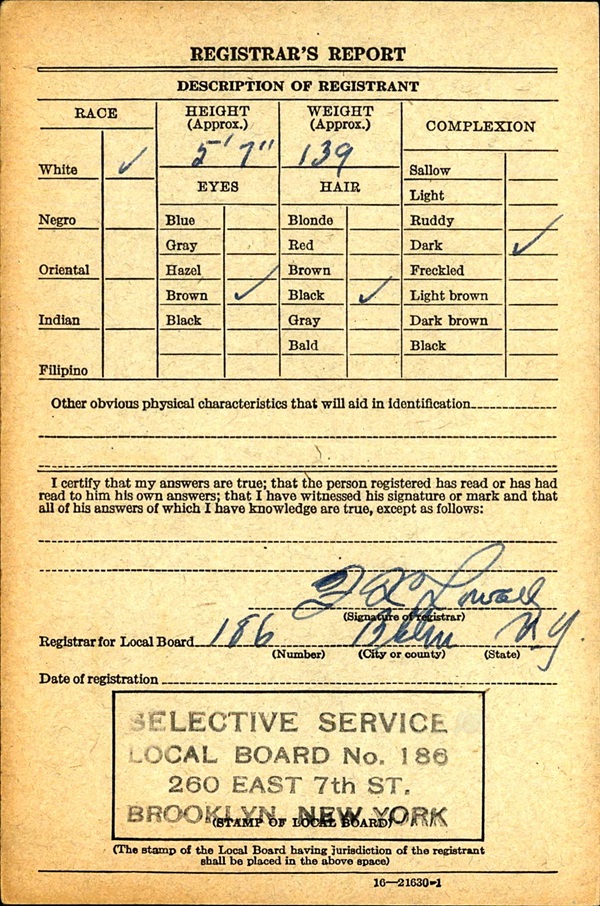 REGISTRAR'S REPORT
DESCRIPTION OF REGISTRANT
RACE
HEIGHT (Approx.)
WEIGHT (Approx.)
COMPLEXION
5' 7"
139
White ✓
EYES
HAIR
Sallow
Light
Negro
Blue
Blonde
Ruddy
Gray
Red
Dark ✓
Oriental
Hazel
Brown
Freckled
Brown ✓
Black ✓
Light brown
Indian
Black
Gray
Dark brown
Bald
Black
Filipino
Other obvious physical characteristics that will aid in identification
I certify that my answers are true; that the person registered has read or has had
read to him his own answers; that I have witnessed his signature or mark and that
all of his answers of which I have knowledge are true, except as follows:
(Signature of registrar)
Registrar for Local Board 186 Bklyn N Y.
(Number) (City or county) (State)
Date of registration
SELECTIVE SERVICE
LOCAL BOARD No. 186
260 EAST 7th ST.
BROOKLYN, NEW YORK
(STAMP OF LOCAL BOARD)
(The stamp of the Local Board having jurisdiction of the registrant
shall be placed in the above space)
16—21630-1